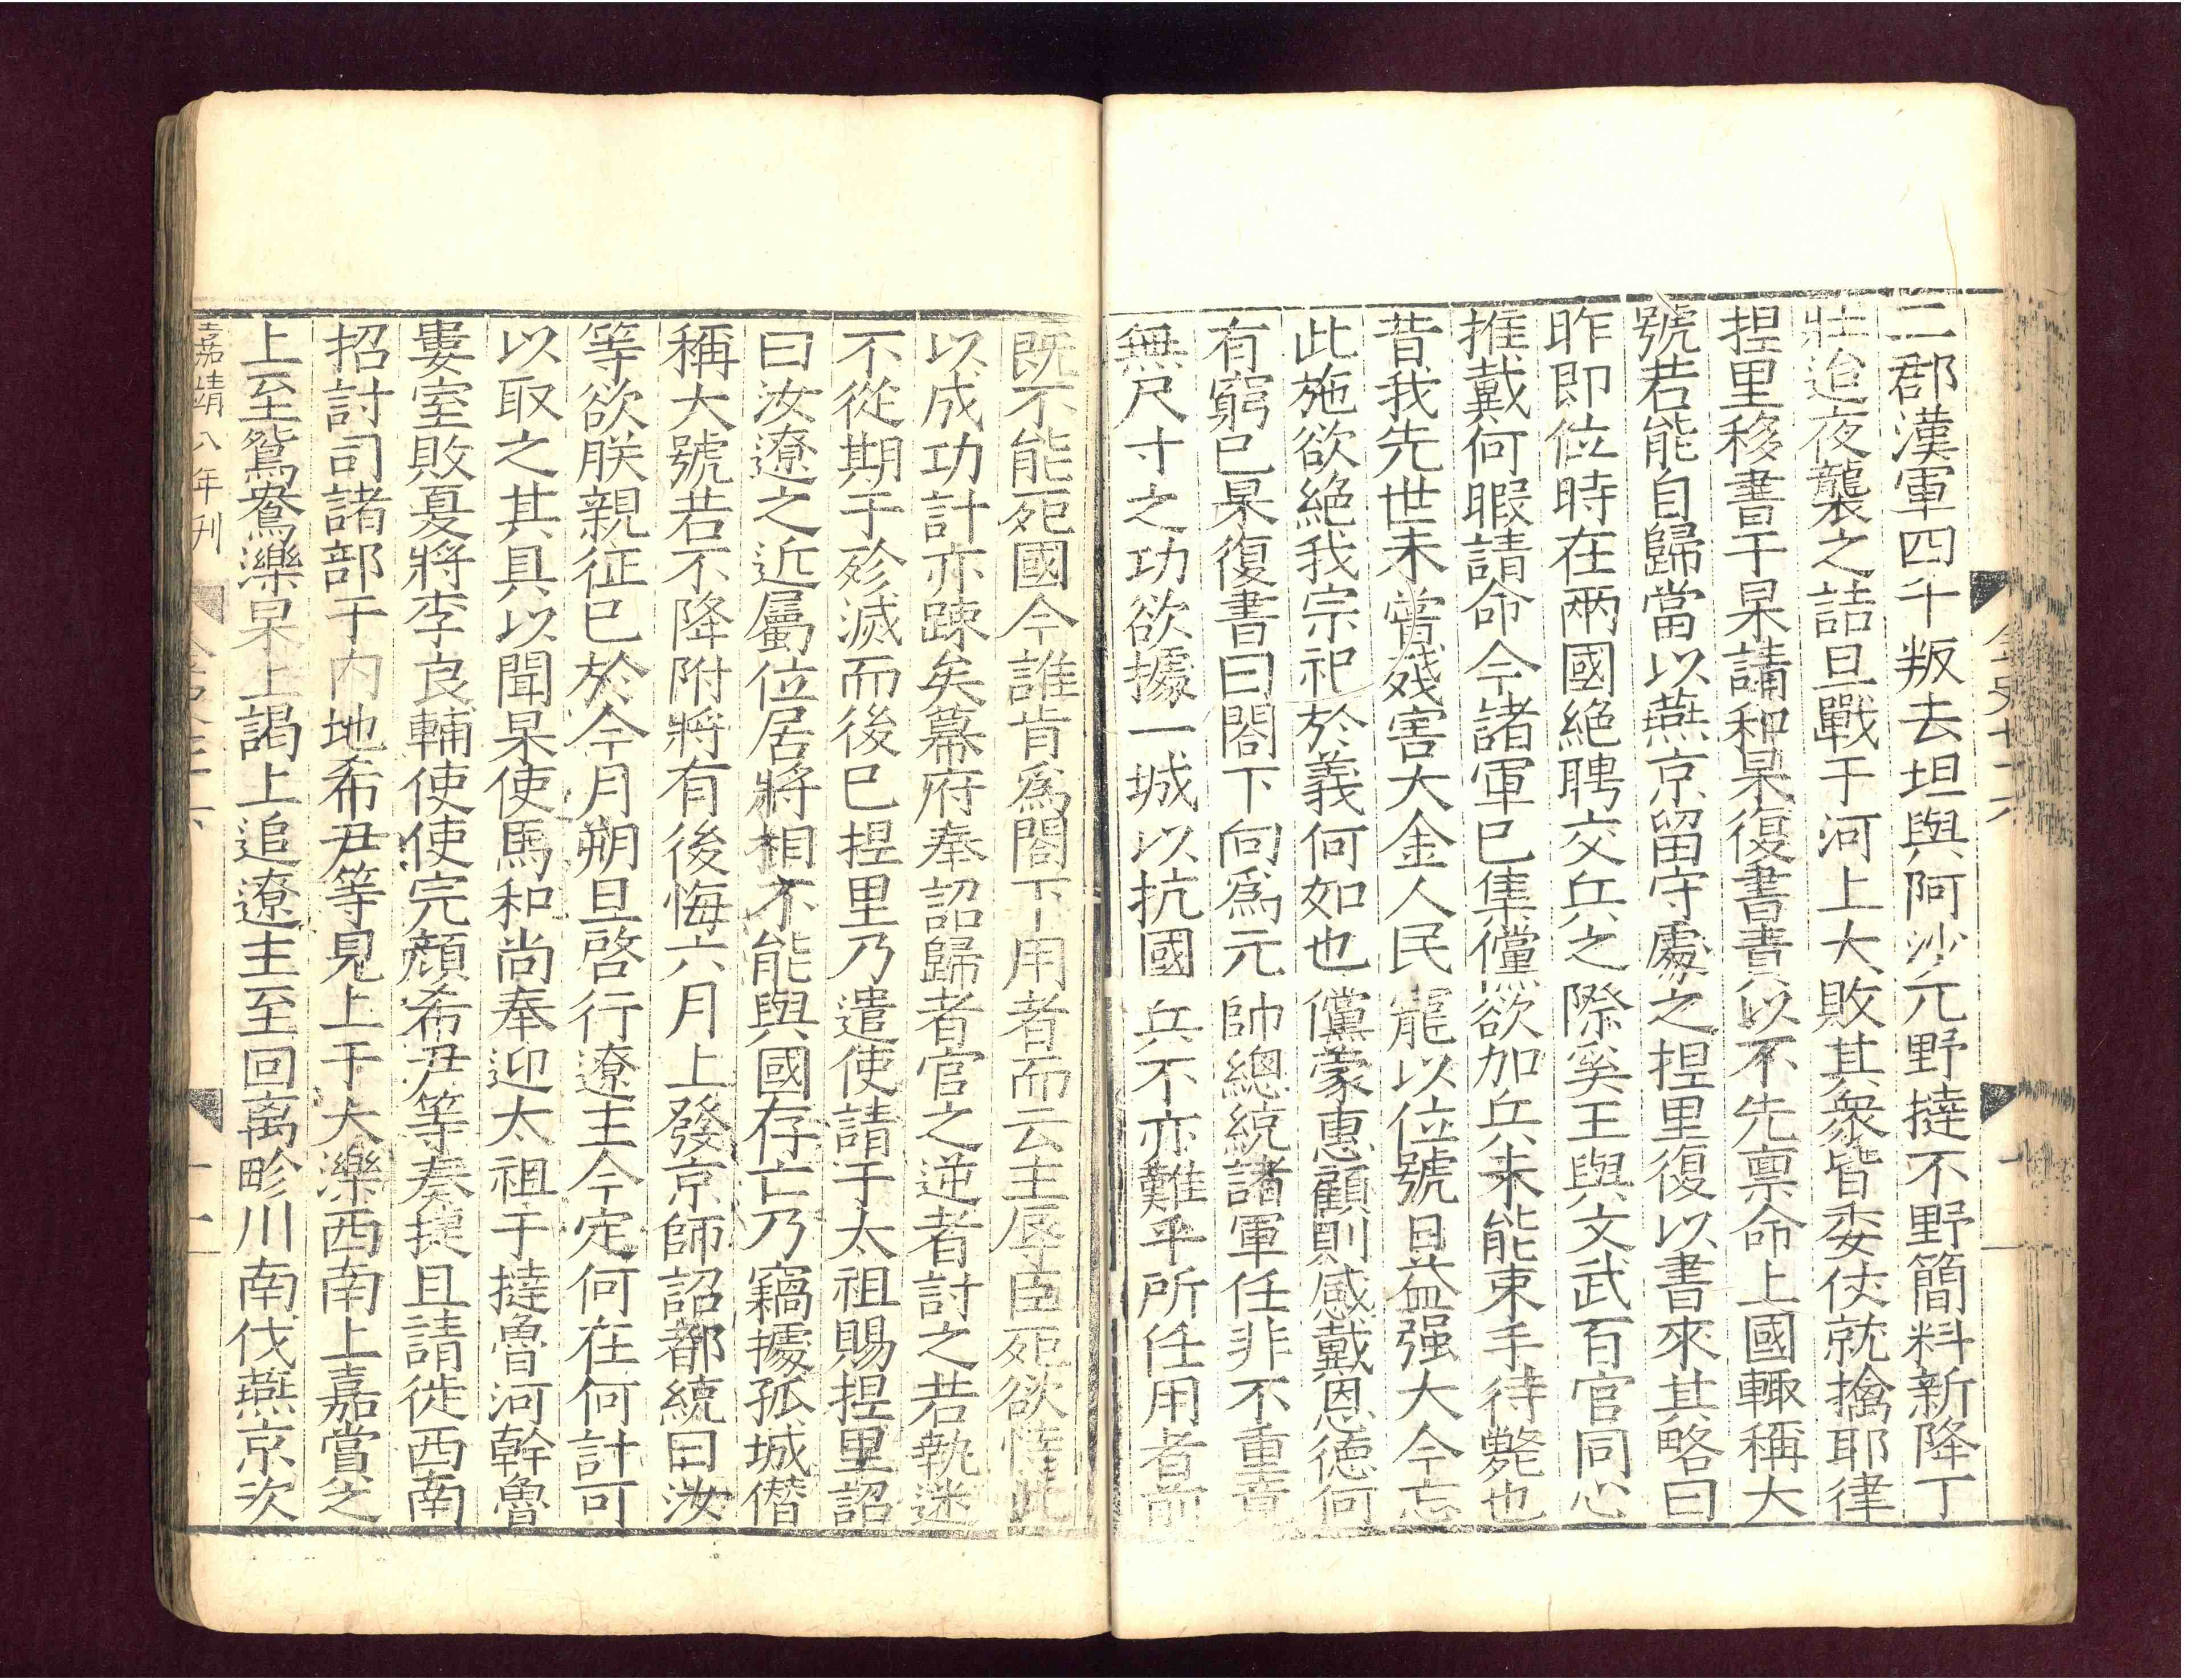 二郡漢軍四千叛去坦與阿沙兀野撻不野簡料新降丁
壯迨夜襲之詰旦戰于河上大敗其衆皆委仗就擒耶律
捏里移書于杲請和杲復書責以不先禀命上國輙稱大
號若能自歸當以燕京留守處之捏里復以書來其略曰
昨即位時在兩國絶聘交兵之際奚王與文武百官同心
推戴何暇請命今諸軍已集儻欲加兵未能束手待斃也
昔我先世未嘗殘害大金人民寵以位號日益强大今忘
此施欲絶我宗祀於義何如也儻蒙惠顧則感戴恩德何
有窮已杲復書曰閤下向爲元帥總統諸軍任非不重竟
無尺寸之功欲據一城以抗國兵不亦難乎所任用者前
既不能死國今誰肯爲閤下用者而云主辱臣死欲恃此
以成功計亦踈矣幕府奉詔歸者官之逆者討之若執迷
不從期于殄滅而後已捏里乃遣使請于太祖賜捏里詔
曰汝遼之近屬位居將相不能與國存亡乃竊據孤城僭
稱大號若不降附將有後悔六月上發京師詔都統曰汝
等欲朕親征已於今月朔旦啓行遼主今定何在何計可
以取之其具以聞杲使馬和尚奉迎太祖于撻魯河斡魯
婁室敗夏將李良輔使使完顔希尹等奏捷且請徙西南
招討司諸部于内地希尹等見上于大濼西南上嘉賞之
上至鴛鴦濼杲上謁上追遼主至回离畛川南伐燕京次
嘉靖八年刊